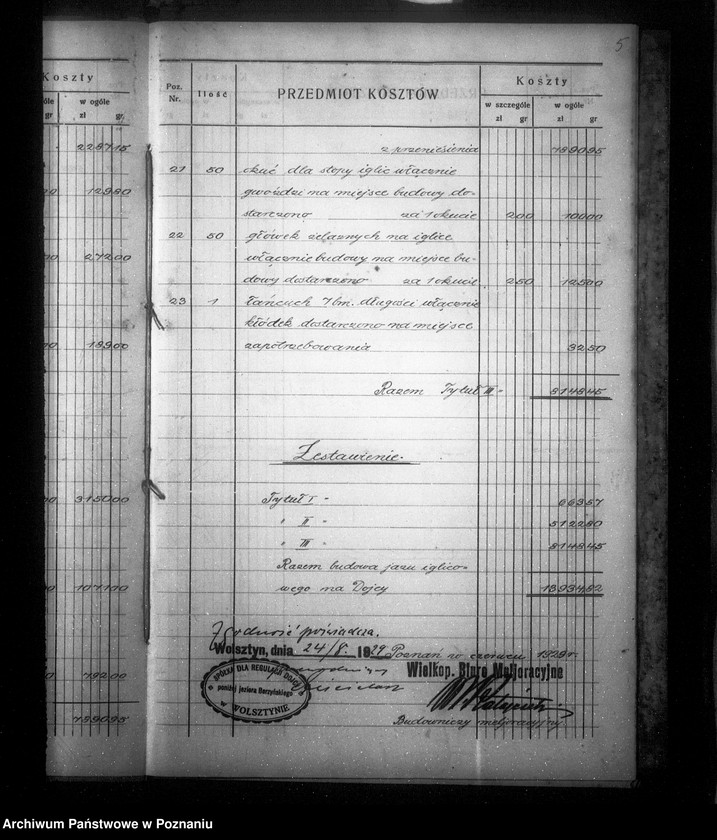 5
Koszty
w ogóle
zł gr
228715
12980
27200
18900
315000
107100
79200
789095
Poz. Nr. Ilość PRZEDMIOT KOSZTÓW Koszty
w szczególe w ogóle
zł gr zł gr
z przeniesienia 789095
21 50 okuć dla stopy iglic włącznie
gwoździ na miejsce budowy do-
starczono za 1 okucie 200 10000
22 50 główek żelaznych na iglice
włącznie budowy na miejsce bu-
dowy dostarczono za 1 okucie 250 12500
23 1 łańcuch 7 bm. długości włącznie
kłódek dostarczono na miejsce
zapotrzebowania 3250
Razem Tytuł III - 814845
Zestawienie.
Tytuł I - 66357
" II - 512280
" III - 814845
Razem budowa jazu iglico-
wego na Dojcy 1393482
Zgodność poświadcza.
Wolsztyn, dnia 24/8. 1929 Poznań w czerwcu 1929 r.
Wielkop. Biuro Meljoracyjne
SPÓŁKA DLA REGULACJI DOJCY
poniżej jeziora Berzyńskiego
w WOLSZTYNIE
Budowniczy meljoracyjny
Archiwum Państwowe w Poznaniu